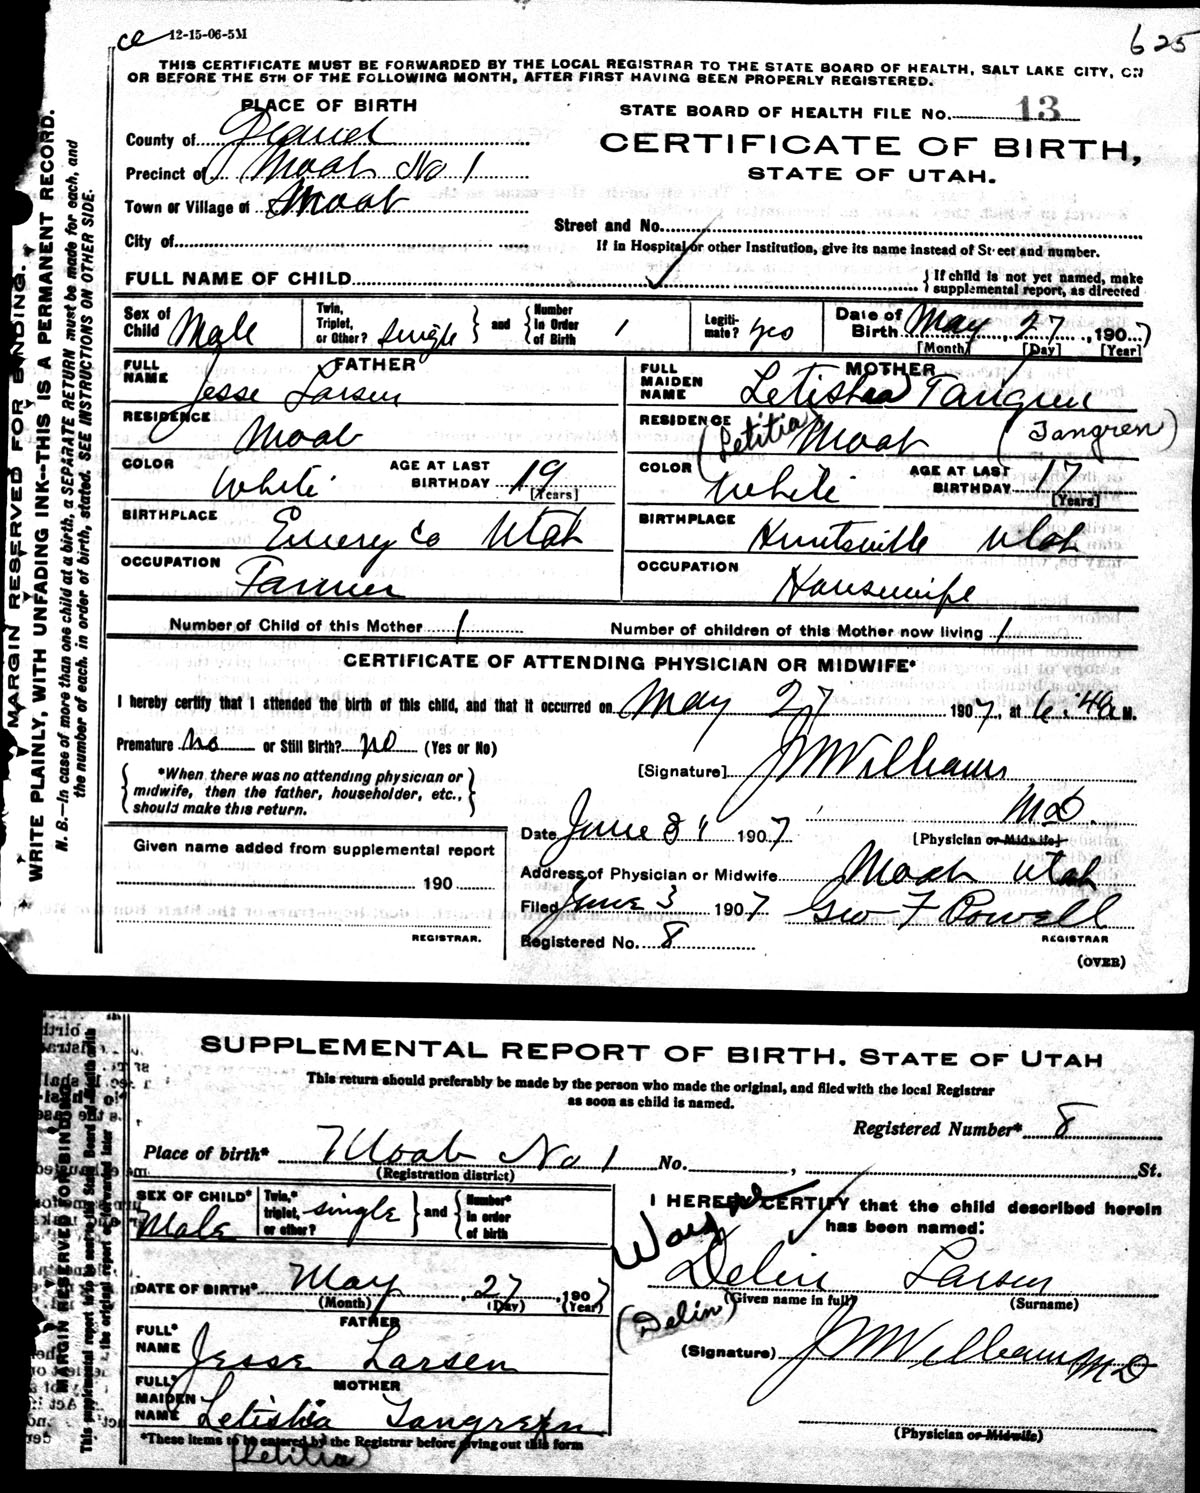 ce 12-15-06-5M
625
THIS CERTIFICATE MUST BE FORWARDED BY THE LOCAL REGISTRAR TO THE STATE BOARD OF HEALTH, SALT LAKE CITY, ON
OR BEFORE THE 5TH OF THE FOLLOWING MONTH, AFTER FIRST HAVING BEEN PROPERLY REGISTERED.
PLACE OF BIRTH
STATE BOARD OF HEALTH FILE No. 13
County of
CERTIFICATE OF BIRTH,
Precinct of Moab No 1
STATE OF UTAH.
Town or Village of Moab
Street and No.
City of
If in Hospital or other Institution, give its name instead of Street and number.
FULL NAME OF CHILD
If child is not yet named, make
supplemental report, as directed
Sex of Child Male
Twin, Triplet, or Other? single and Number In Order of Birth 1
Legiti-mate? yes
Date of Birth May 27, 1907
[Month] [Day] [Year]
FATHER
FULL NAME Jesse Larsen
MOTHER
FULL MAIDEN NAME Letishia Tangren
RESIDENCE Moab
RESIDENCE (Letitia) Moab (Tangren)
COLOR White AGE AT LAST BIRTHDAY 19 [Years]
COLOR White AGE AT LAST BIRTHDAY 17 [Years]
BIRTHPLACE Emery Co Utah
BIRTHPLACE Huntsville Utah
OCCUPATION Farmer
OCCUPATION Housewife
Number of Child of this Mother 1 Number of children of this Mother now living 1
CERTIFICATE OF ATTENDING PHYSICIAN OR MIDWIFE*
I hereby certify that I attended the birth of this child, and that it occurred on May 27 1907, at 6:40 a M.
Premature no or Still Birth? no (Yes or No)
*When there was no attending physician or
midwife, then the father, householder, etc.,
should make this return.
[Signature] J W Williams
M.D.
Date June 3 1907
[Physician or Midwife]
Given name added from supplemental report
190
REGISTRAR.
Address of Physician or Midwife Moab Utah
Filed June 3 1907 Geo F Powell
REGISTRAR
Registered No. 8
(OVER)
MARGIN RESERVED FOR BINDING.
WRITE PLAINLY, WITH UNFADING INK--THIS IS A PERMANENT RECORD.
N. B.--In case of more than one child at a birth, a SEPARATE RETURN must be made for each, and
the number of each, in order of birth, stated. SEE INSTRUCTIONS ON OTHER SIDE.
SUPPLEMENTAL REPORT OF BIRTH. STATE OF UTAH
This return should preferably be made by the person who made the original, and filed with the local Registrar
as soon as child is named.
Registered Number* 8
Place of birth* Moab No 1 No. , St.
(Registration district)
SEX OF CHILD* Male
Twin,* triplet, or other? single and Number* in order of birth
I HEREBY CERTIFY that the child described herein
has been named:
DATE OF BIRTH* May 27, 1907
(Month) (Day) (Year)
Delin Larsen
(Given name in full) (Surname)
(Delin)
FATHER
FULL* NAME Jesse Larsen
(Signature) J W Williams MD
MOTHER
FULL* MAIDEN NAME Letishia Tangreen
(Physician or Midwife)
*These items to be entered by the Registrar before giving out this form
(Letitia)
MARGIN RESERVED FOR BINDING